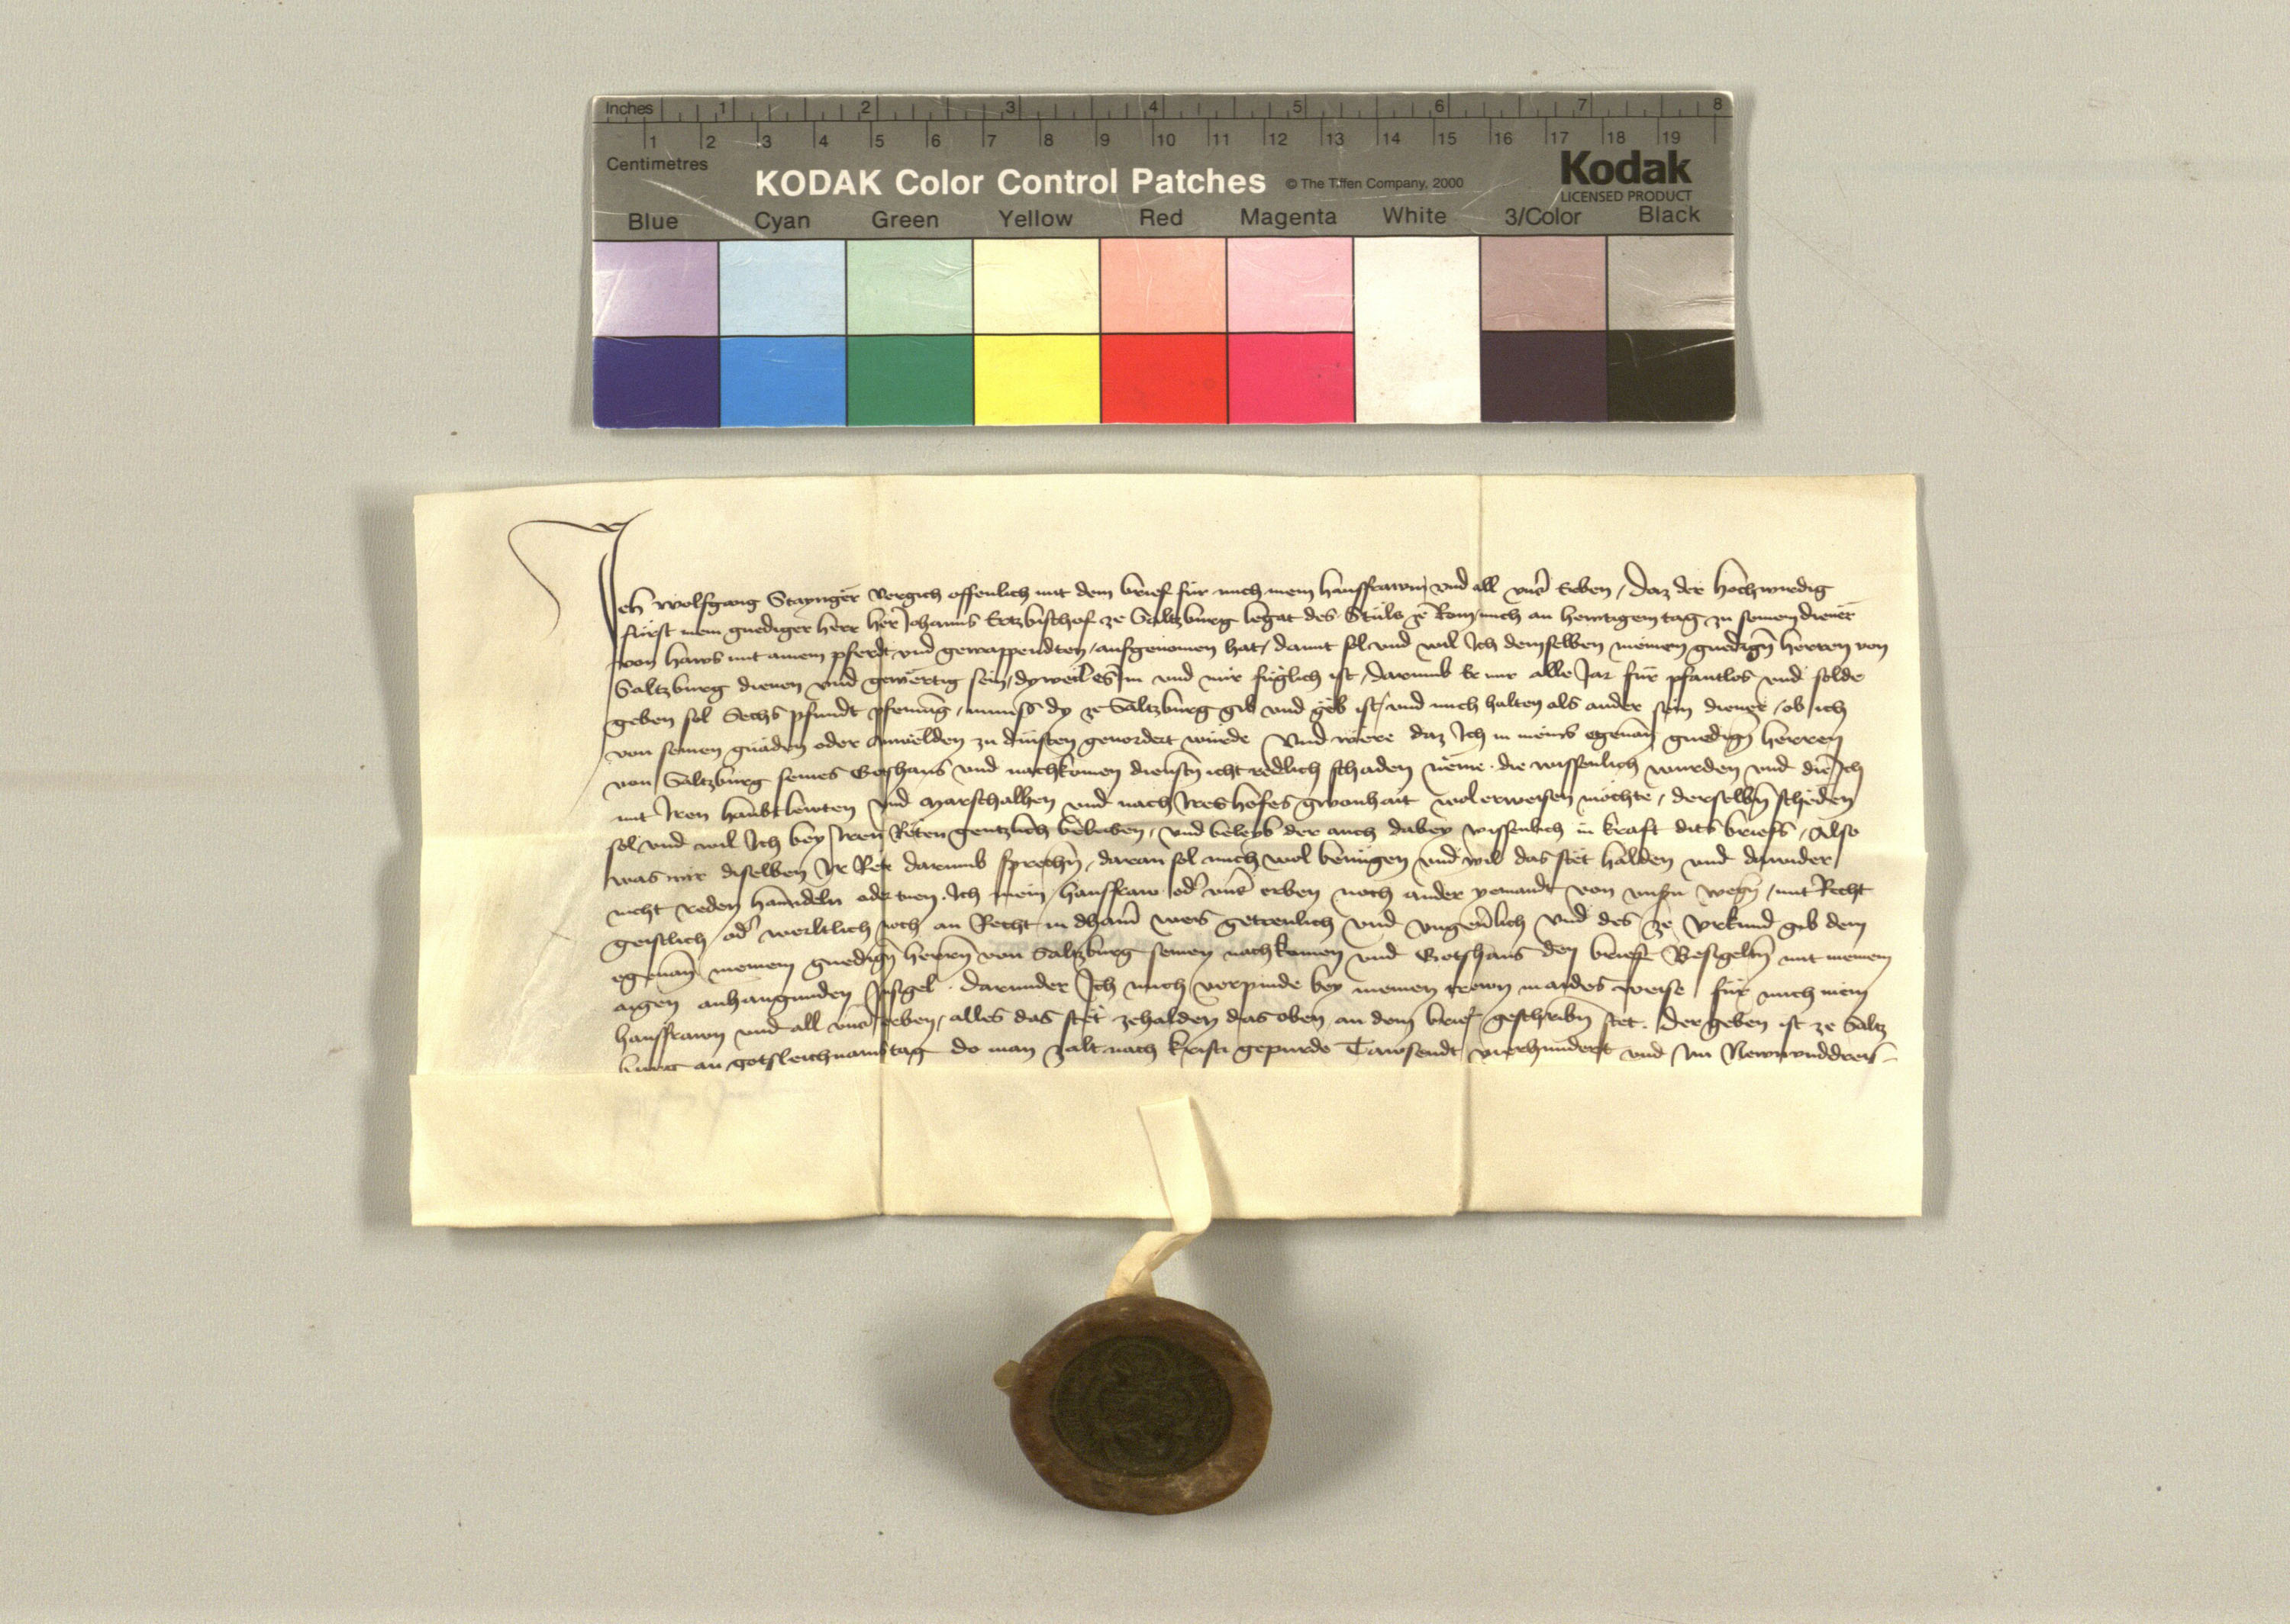 Inches 1 2 3 4 5 6 7 8
1 2 3 4 5 6 7 8 9 10 11 12 13 14 15 16 17 18 19
Centimetres
KODAK Color Control Patches © The Tiffen Company, 2000 Kodak
LICENSED PRODUCT
Blue Cyan Green Yellow Red Magenta White 3/Color Black
Ich Wolfgang Staynger Vergich offenlich mit dem brief für mich mein hausfrawn vnd all vnser Erben / Daz der Hochwirdig
fürst mein gnediger herr her Johanns Ertzbischof ze Saltzburg legat des Stuls ze Rom mich an hewtigem tag zu seinem diener
von haws mit ainem pferdt vnd gewappendten / aufgenomen hat / damit sol vnd wil Ich demselben meinen gnedign herren von
Saltzburg dienen vnd gewertig sein / dyweil es im vnd mir füglich ist / Darumb Er mir alle Jar für pfantlos vnd solde
geben sol Sechs pfundt pfenning / munss dy ze Saltzburg gib vnd geb ist / vnd mich halten als ander sein diener / ob ich
von seinen gnaden oder Anwelden zu dinsten geuordert wurde Vnd were daz Ich in meins egenan gnedign herren
von Saltzburg seines Gotshaus vnd nachkomen dienstn icht redlich schaden neme . die wissenlich wurden vnd die Ich
mit Iren haubtlewten vnd Marschalhen vnd nach Ires hofes gwonhait wol erweisen mochte / derselbn scheden
sol vnd wil Ich bey Iren Reten gentzlich beleiben / vnd beleyb der auch dabey wissenlich in kraft dits briefs / Also
was mir dieselben Ir Ret darumb sprechn / daran sol mich wol benügen vnd wil das stet halden vnd dawider
nicht reden hanndeln oder tuen . Ich mein hausfraw oder vnser erben noch ander yemandt von vnsern wegn / mit Recht
geistlich oder werltlich noch an Recht in dhain weis getreulich vnd vngeuerlich Vnd des ze Vrkund gib dem
egenan meinem gnedign herrn von Saltzburg seinen nachkomen vnd Gotshaus den brief Besigeltn mit meinem
aigen anhangunden Insigel . darunder Ich mich verpinde bey meinen trewn in aides weise für mich mein
hausfrawn vnd all vnser erben / alles das stet zehalden das oben an dem brief geschribn stet . Der geben ist ze Saltz
burg an gotsleichnamstag do man zalt nach kristi gepurde Tawsendt vierhundert vnd Im Newnvnddreis-